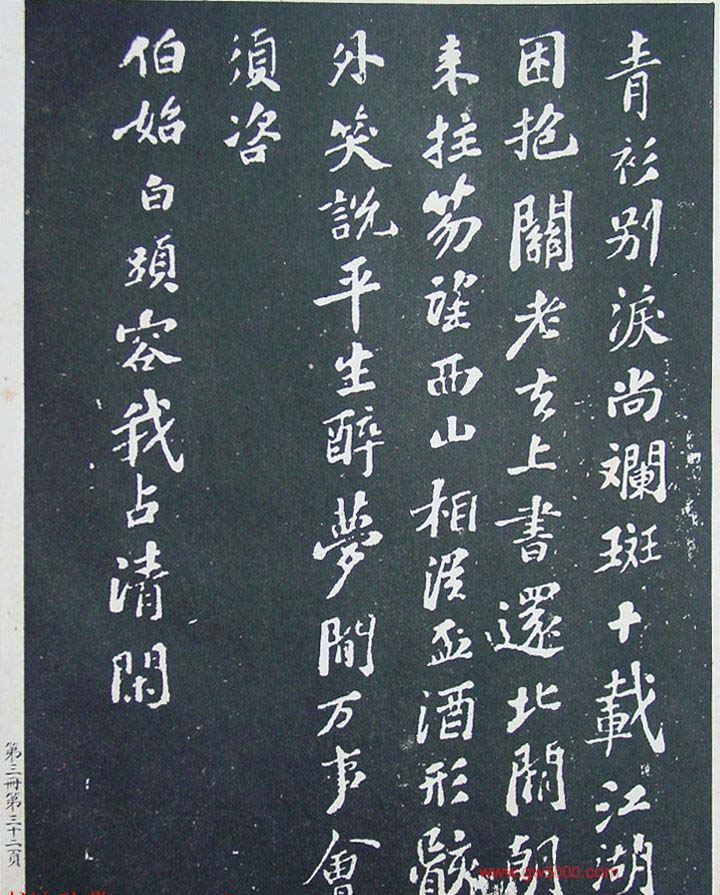 青衫别淚尚斕斑十載江湖
困抱關老去上書還北闕朝
来拄笏望西山相從盃酒形骸
外笑說平生醉夢間万事會
須咨
伯始白頭容我占清閑
第三冊第三十二頁